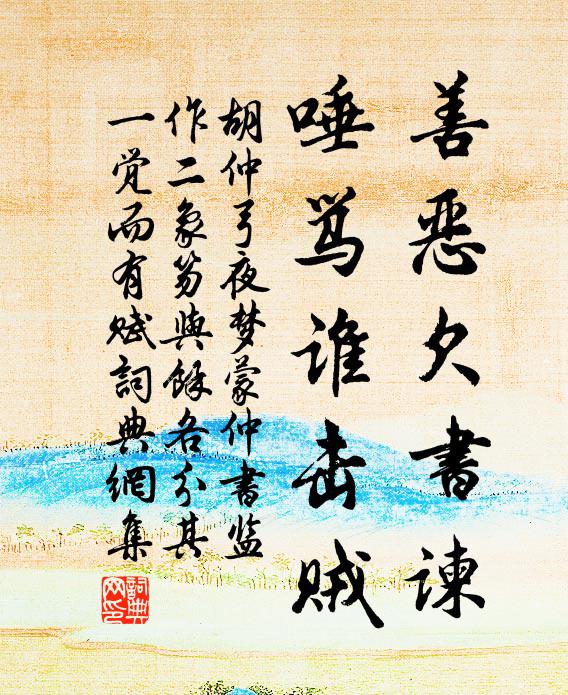 善恶欠書諫
唾骂谁击贼
胡仲弓夜梦蒙仲書监
作二象笏與餘各分其
一觉而有赋詞典網集
詞典
文印